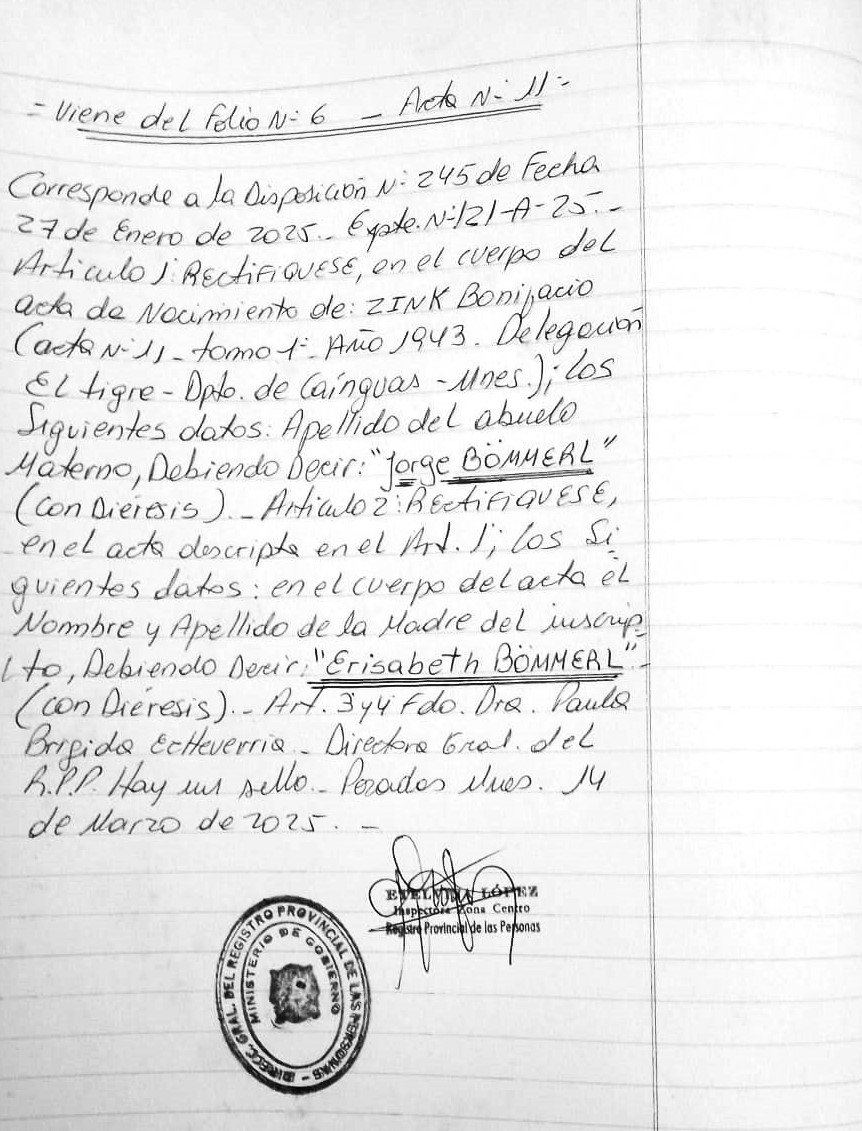 = Viene del Folio N- 6 - Acta N- 11 =
Corresponde a la Disposición N- 245 de Fecha
27 de Enero de 2025.- Expte. N-121-A-25.-
Articulo 1: RECTiFiQUESE, en el cuerpo del
acta de Nacimiento de: ZINK Bonifacio
(acta N-11 - tomo 1º- Año 1943. Delegación
El tigre - Dpto. de Caínguas - Mnes.); los
Siguientes datos: Apellido del abuelo
Materno, Debiendo Decir: "Jorge BÖMMERL"
(con Dieresis).- Articulo 2: RECtiFiQUESE,
en el acta descripta en el Art. 1; los Si
guientes datos: en el cuerpo del acta el
Nommbre y Apellido de la Madre del inscrip-
to, Debiendo Decir: "Erisabeth BÖMMERL"-
(con Diéresis).- Art. 3 y 4 Fdo. Dra. Paula
Brigida EcHeverria - Directora Gral. del
R.P.P. Hay un sello.- Posadas Mnes. 14
de Marzo de 2025. -
ETELVINA LÓPEZ
Inspectora Zona Centro
Registro Provincial de las Personas
DIRECC. GRAL. DEL REGISTRO PROVINCIAL DE LAS PERSONAS -
MINISTERIO DE GOBIERNO